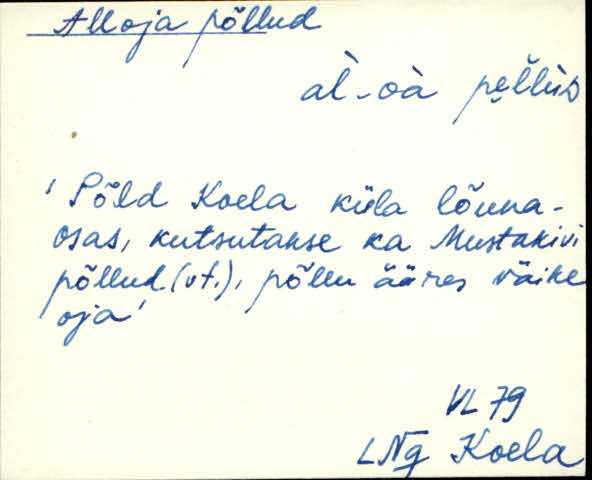 Alloja põllud
al̀-oà pe̮l̆lùᴅ
'Põld Koela küla lõuna-
osas, kutsutakse ka Mustakivi
põllud (vt.), põllu ääres väike
oja'
VL 79
LNg Koela